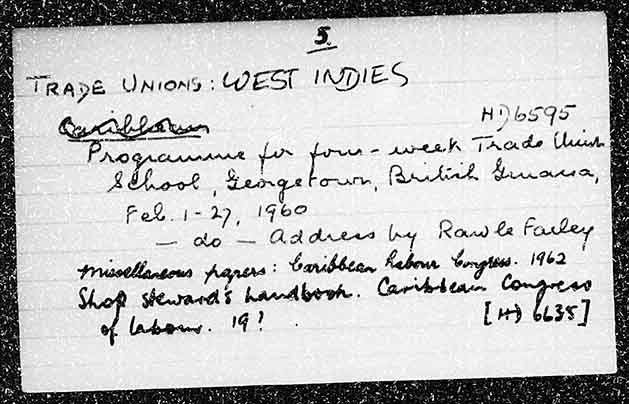 5.
TRADE UNIONS: WEST INDIES
Caribbean
HD6595
Programme for four-week Trade Union
School, Georgetown, British Guiana,
Feb. 1-27, 1960
— do — Address by Rawle Farley
Miscellaneous papers: Caribbean Labour Congress. 1962
Shop steward's handbook. Caribbean Congress
of labour. 19?
[HD 6635]